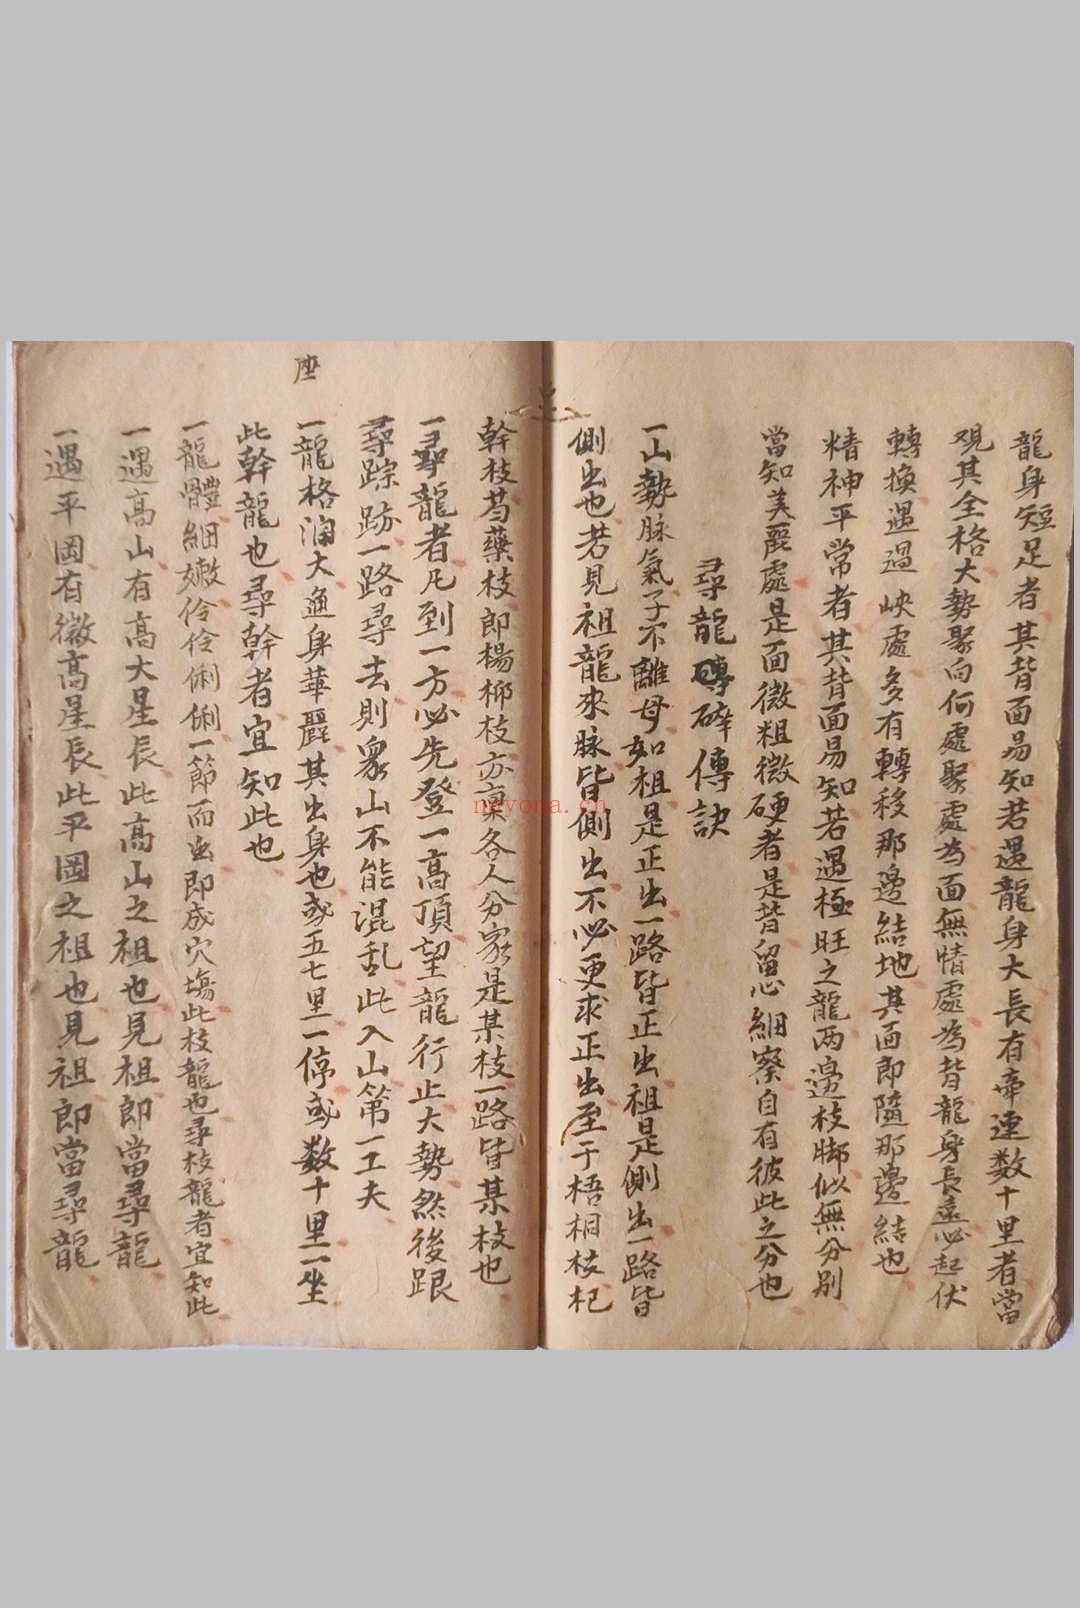 龍身短足者其背面易知若遇龍身大長有牽連数十里者當
观其全格大勢聚向何處聚處為面無情處為背龍身長遠必起伏
轉換遇過峽處多有轉移那邊結地其面即隨那邊結也
精神平常者其背面易知若遇極旺之龍两邊枝脚似無分別
當知美麗處是面微粗微硬者是背留心細察自有彼此之分也
尋龍磚碎傳訣
一山勢脉氣子不離母如祖是正出一路皆正出祖是側出一路皆
側出也若見祖龍來脉皆側出不必更求正出至于梧桐枝杞
幹枝芍藥枝即楊柳枝亦稟各人分家是某枝一路皆某枝也
一尋龍者凡到一方必先登一高頂望龍行止大勢然後跟
尋踪跡一路尋去則衆山不能混乱此入山第一工夫
座
一龍格濶大通身華麗其出身也或五七里一停或数十里一坐
此幹龍也尋幹者宜知此也
一龍體細嫩伶伶俐俐一節而出即成穴塲此枝龍也尋枝龍者宜知此
一遇高山有高大星辰此高山之祖也見祖即當尋龍
一遇平岡有微高星辰此平岡之祖也見祖即當尋龍
nayona.cn